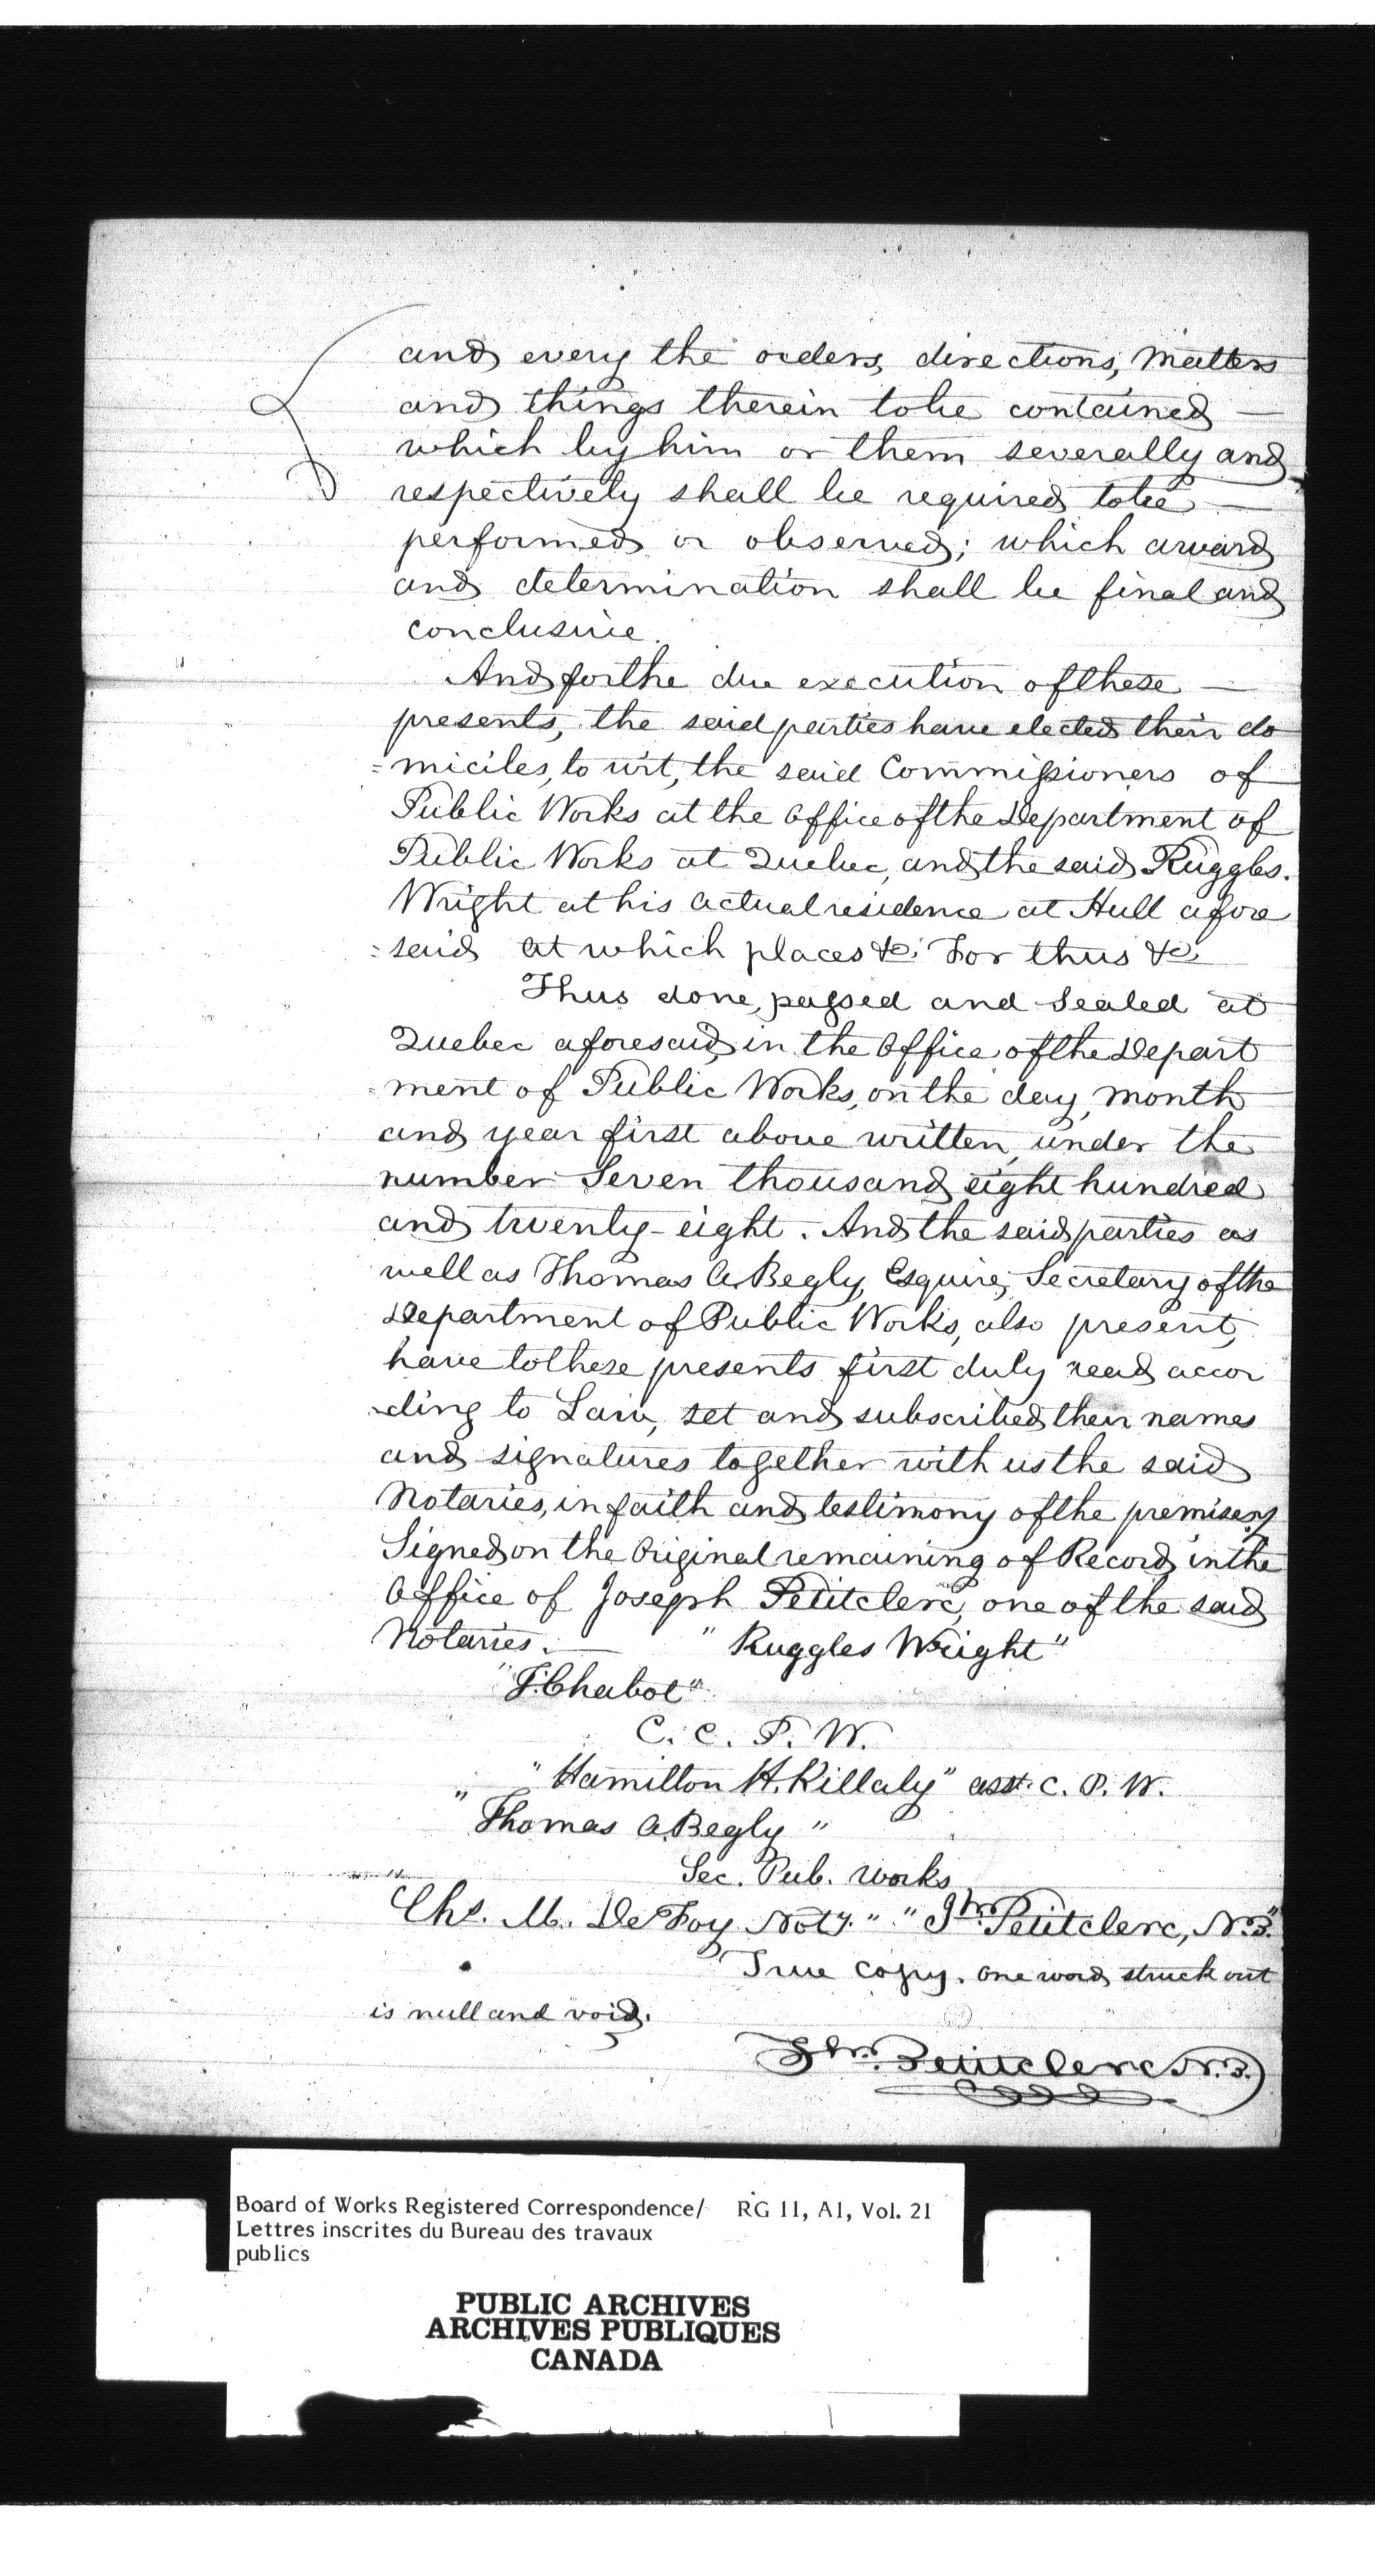 and every the orders, directions, Matters
and things therein to be contained —
which by him or them severally and
respectively shall be required to be —
performed or observed; which award
and determination shall be final and
conclusive.
And for the due execution of these —
presents, the said parties have elected their do
=miciles, to wit, the said Commissioners of
Public Works at the Office of the Department of
Public Works at Quebec, and the said Ruggles.
Wright at his actual residence at Hull afore
=said at which places &c. For thus &c.
Thus done, passed and Sealed at
Quebec aforesaid, in the Office of the Depart
=ment of Public Works, on the day, month
and year first above written, under the
number Seven thousand eight hundred
and twenty-eight. And the said parties as
well as Thomas A. Begly, Esquire, Secretary of the
Department of Public Works, also present,
have to these presents first duly read accor
-ding to Law, set and subscribed their names
and signatures together with us the said
Notaries, in faith and testimony of the premises
Signed on the Original remaining of Record in the
Office of Joseph Petitclerc, one of the said
Notaries. — "Ruggles Wright"
"J. Chabot"
C. C. P. W.
"Hamilton H. Killaly" asst. C. P. W.
"Thomas A. Begly"
Sec. Pub. Works
Chs. M. DeFoy Noty." "Jh. Petitclerc, N.P."
True copy. one word struck out
is null and void.
Jh. Petitclerc N.P.
Board of Works Registered Correspondence/ RG 11, A1, Vol. 21
Lettres inscrites du Bureau des travaux
publics
PUBLIC ARCHIVES
ARCHIVES PUBLIQUES
CANADA